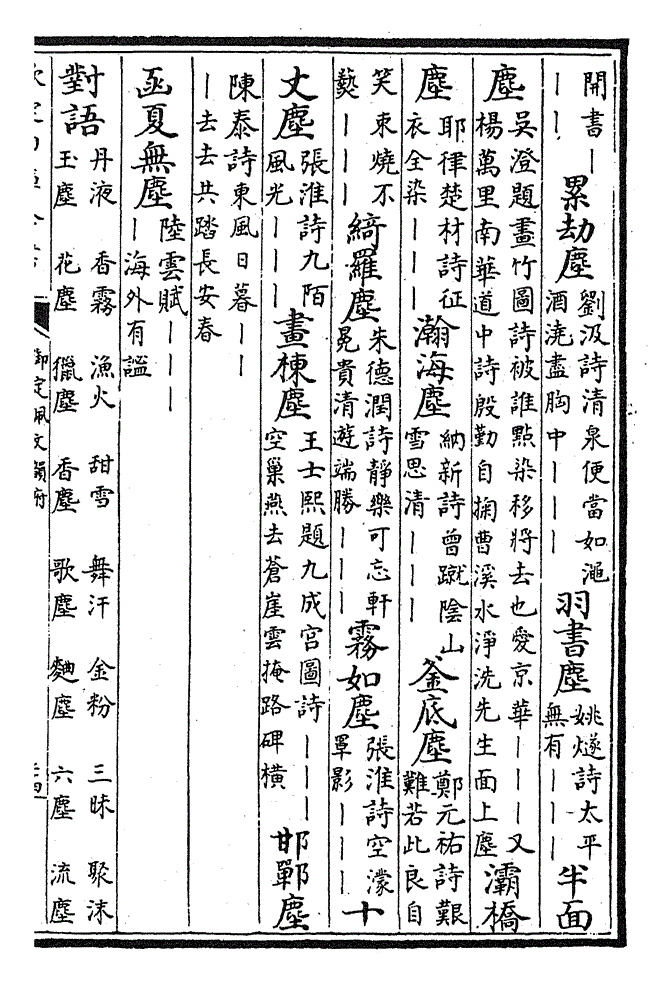 開書丨丨丨累劫塵劉汲詩清泉便當如澠酒澆盡胸中丨丨丨羽書塵姚燧詩太平無有丨丨丨半面
塵吳澄題畫竹圖詩被誰點染移將去也愛京華丨丨丨又楊萬里南華道中詩殷勤自掬曹溪水淨洗先生面上塵灞橋
塵耶律楚材詩征衣全染丨丨丨瀚海塵納新詩曾蹴陰山雪思清丨丨丨釜底塵鄭元祐詩艱難若此良自
笑束燒不爇丨丨丨綺羅塵朱德潤詩靜樂可忘軒冕貴清遊端勝丨丨丨霧如塵張淮詩空濛罩影丨丨丨十
丈塵張淮詩九陌風光丨丨丨畫棟塵王士熙題九成宮圖詩丨丨丨空巢燕去蒼崖雲掩路碑橫邯鄲塵
陳泰詩東風日暮丨丨丨去去共踏長安春
函夏無塵陸雲賦丨丨丨丨海外有謐
對語 丹液 香霧 漁火 甜雪 舞汗 金粉 三昧 聚沫
玉塵 花塵 獵塵 香塵 歌塵 麴塵 六塵 流塵
御定佩文韻府